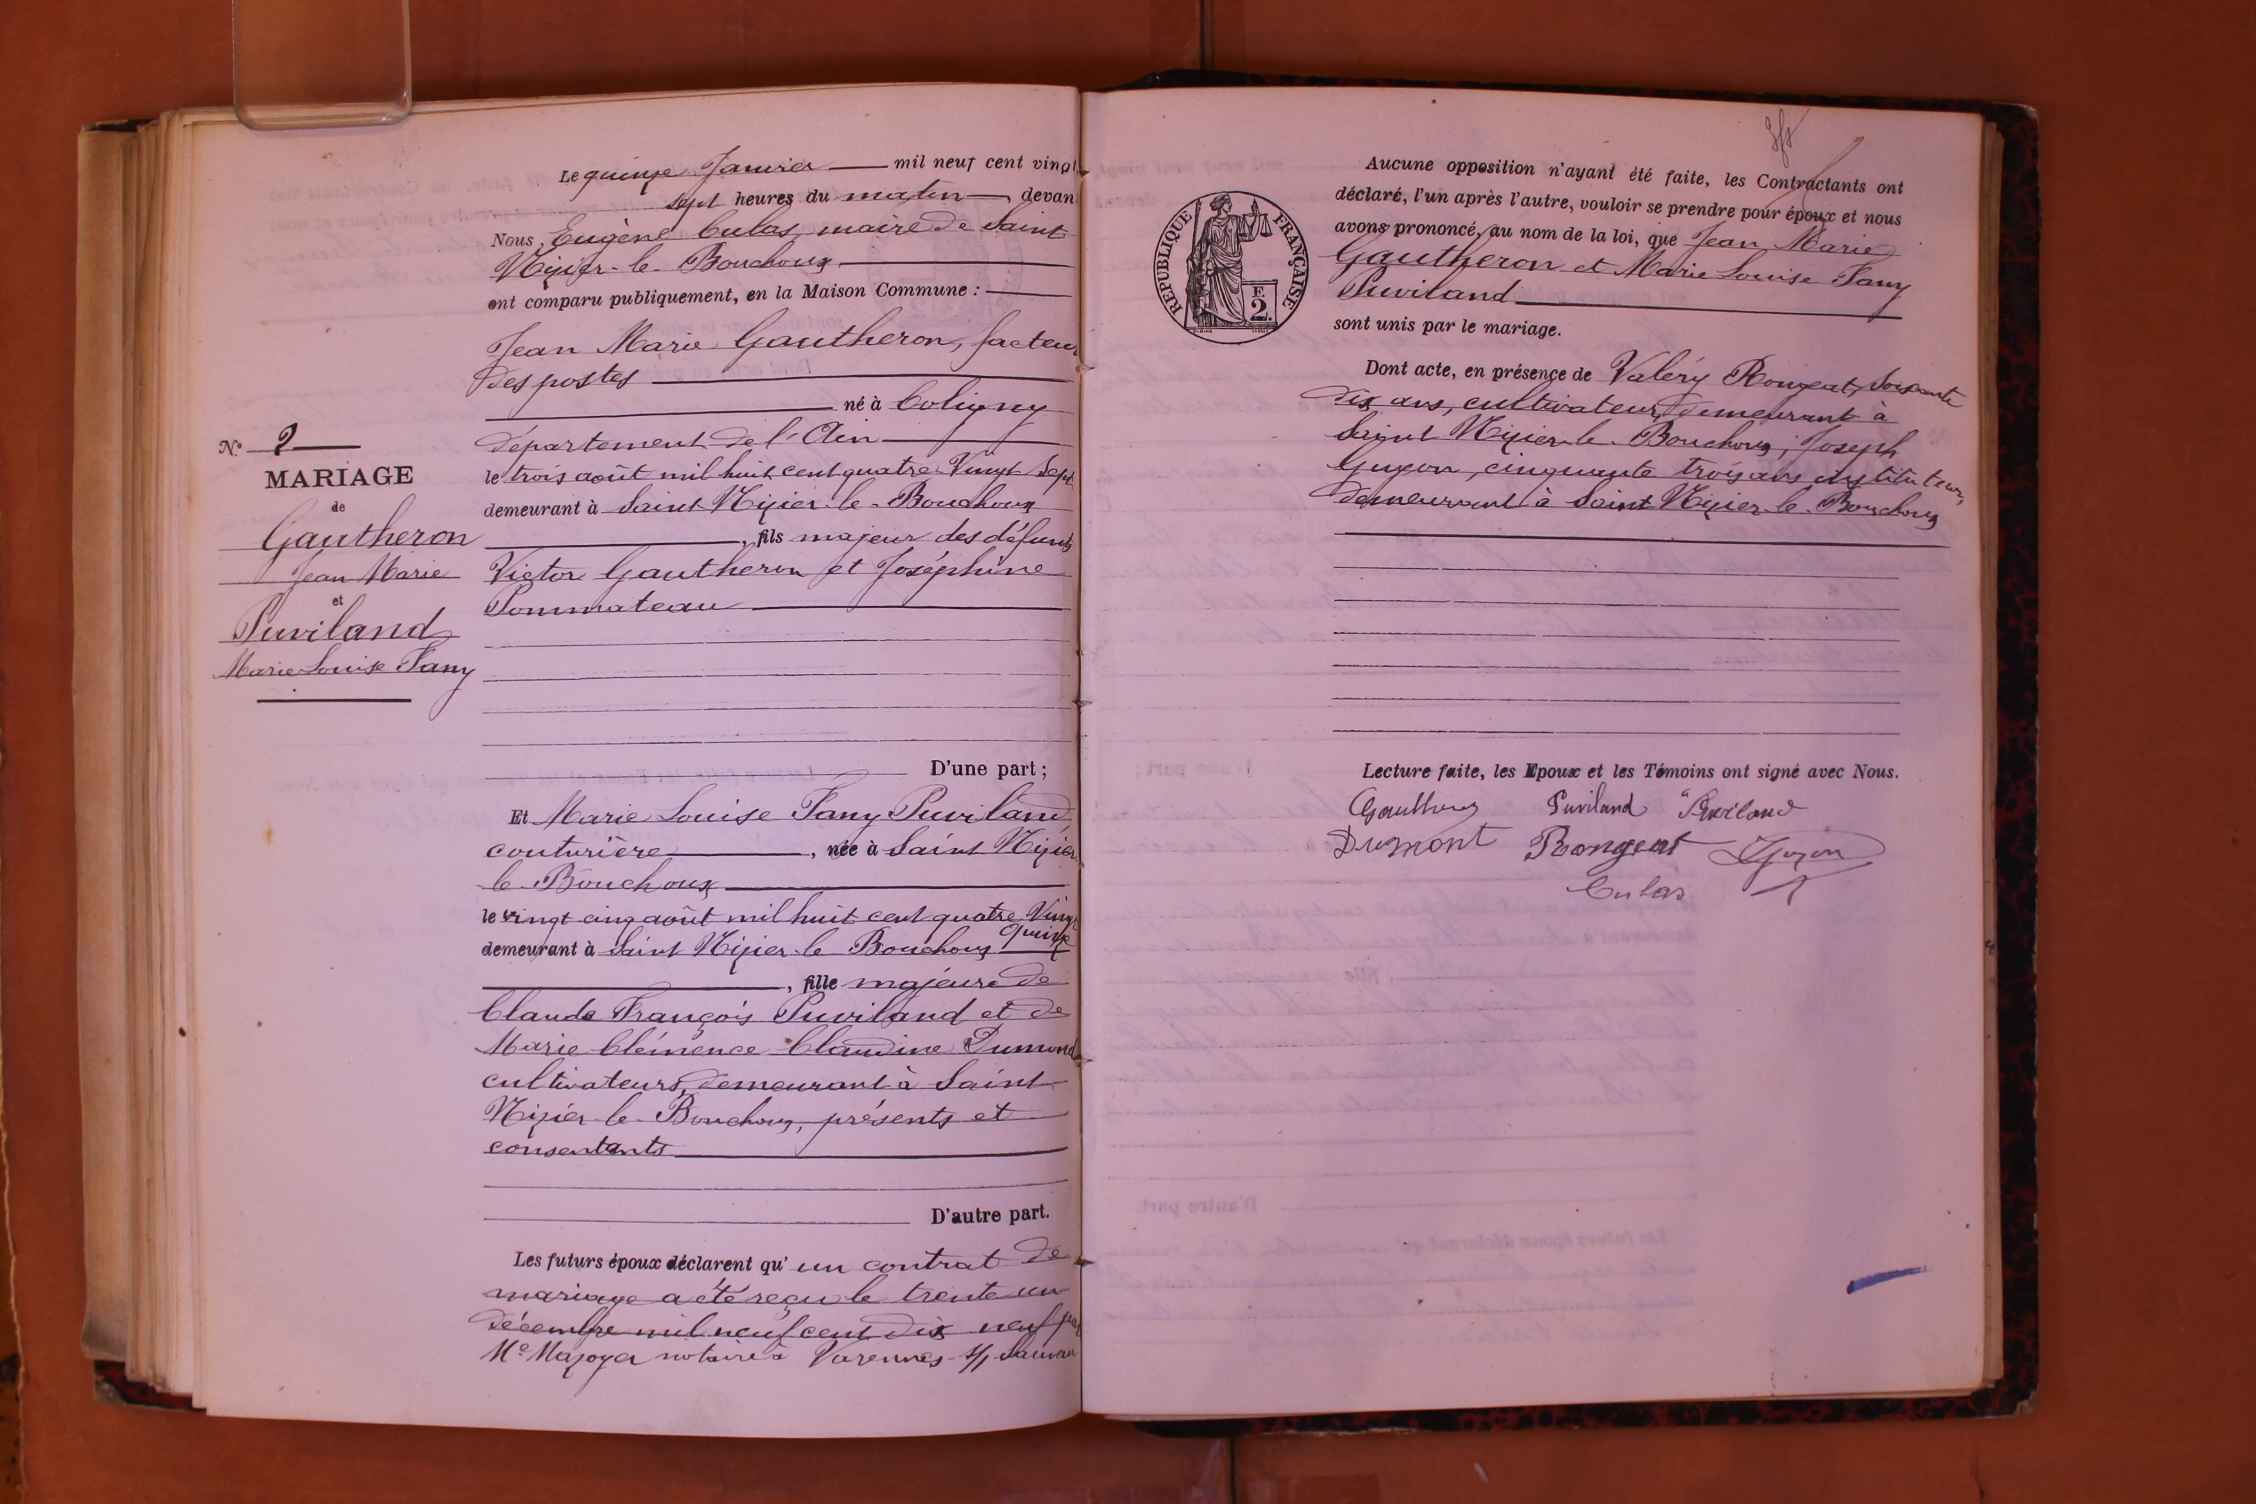 Le quinze Janvier mil neuf cent vingt
sept heures du matin, devan
Nous Eugène Culas, maire de Saint
Nizier-le-Bouchoux
ont comparu publiquement, en la Maison Commune :
Jean Marie Gautheron, facteur
des postes
né à Coligny
département de l'Ain
le trois août mil huit cent quatre Vingt Sept
demeurant à Saint Nizier-le-Bouchoux
, fils majeur des défunts
Victor Gautheron et Joséphine
Pommateau
N° 2
MARIAGE
de
Gautheron
Jean Marie
et
Puviland
Marie Louise Fany
D'une part ;
Et Marie Louise Fany Puviland
couturière, née à Saint Nizier
le Bouchoux
le vingt cinq août mil huit cent quatre Vingt
quinze
demeurant à Saint Nizier-le Bouchoux
, fille majeure de
Claude François Puviland et de
Marie Clémence Claudine Dumond
cultivateurs, demeurant à Saint
Nizier-le-Bouchoux, présents et
consentants
D'autre part.
Les futurs époux déclarent qu' un contrat de
mariage a été reçu le trente un
décembre mil neuf cent dix neuf par
Me Mazoyer notaire à Varennes s/ Sauveur
RÉPUBLIQUE FRANÇAISE
F.
2.
Aucune opposition n'ayant été faite, les Contractants ont
déclaré, l'un après l'autre, vouloir se prendre pour époux et nous
avons prononcé, au nom de la loi, que Jean Marie
Gautheron et Marie Louise Fany
Puviland
sont unis par le mariage.
Dont acte, en présence de Valéry Rongeat, Soixante
dix ans, cultivateur, demeurant à
Saint Nizier-le-Bouchoux, Joseph
Guyon, cinquante trois ans instituteur,
demeurant à Saint Nizier-le-Bouchoux
Lecture faite, les Epoux et les Témoins ont signé avec Nous.
Gautheron Puviland Puviland
Dumont Rongeat JGuyon
Culas